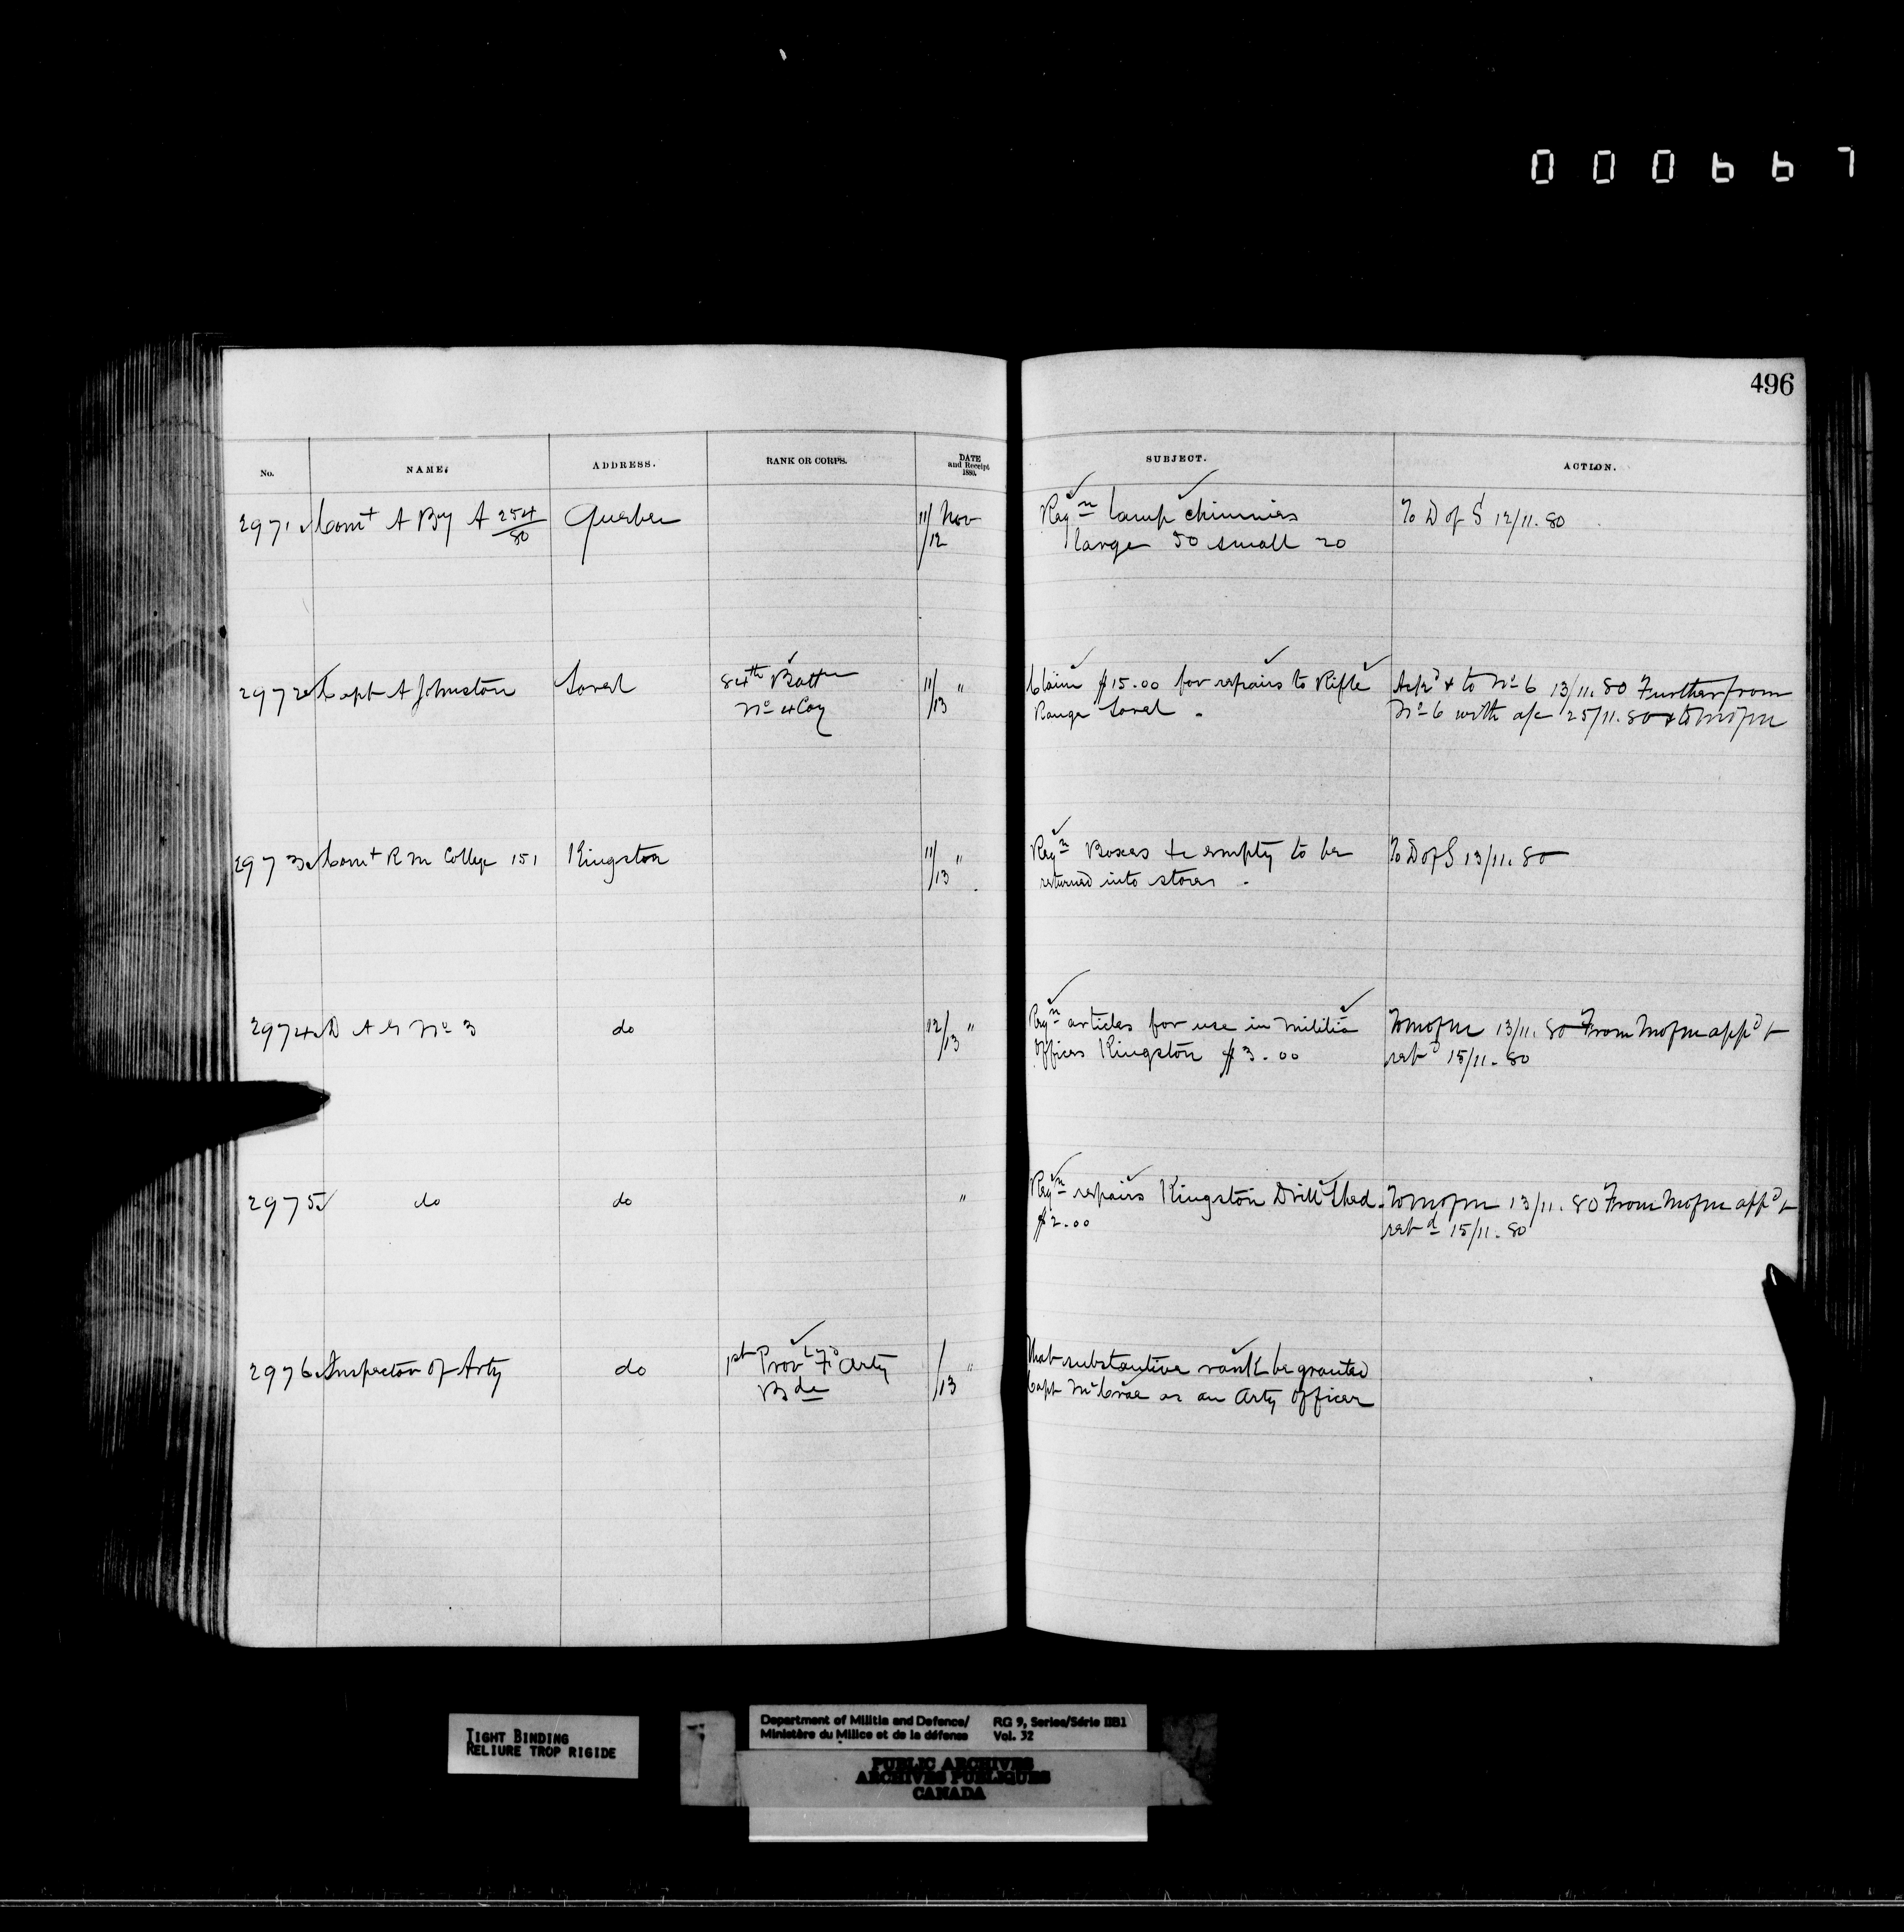 000667
496
No. NAME. ADDRESS. RANK OR CORPS. DATE and Receipt 1880. SUBJECT. ACTION.
2971 Comt A By A 254/80 Quebec 11/12 Nov Reqn Lamp chimnies To D of S 12/11.80
large 50 small 20
2972 Capt A Johnston Sorel 84th Battn 11/13 " Claim $15.00 for repairs to Rifle App'd & to No 6 13/11.80 Further from
No 4 Coy Range Sorel. No 6 with a/c 25/11.80 & to M of M
2973 Comt R M College 151 Kingston 11/13 " Reqn Boxes &c empty to be To D of S 13/11.80
returned into stores.
2974 D A G No 3 do 12/13 " Reqn articles for use in Militia To M of M 13/11.80 From M of M app'd &
offices Kingston $3.00 retd 15/11.80
2975 do do " Reqn repairs Kingston Drill Shed. To M of M 13/11.80 From M of M app'd &
$2.00 retd 15/11.80
2976 Inspector of Arty do 1st Provl Fd Arty /13 " That substantive rank be granted
Bde Capt McCrae as an Arty officer
TIGHT BINDING
RELIURE TROP RIGIDE
Department of Militia and Defence/ RG 9, Series/Série IIB1
Ministère du Milice et de la défense Vol. 32
PUBLIC ARCHIVES
ARCHIVES PUBLIQUES
CANADA